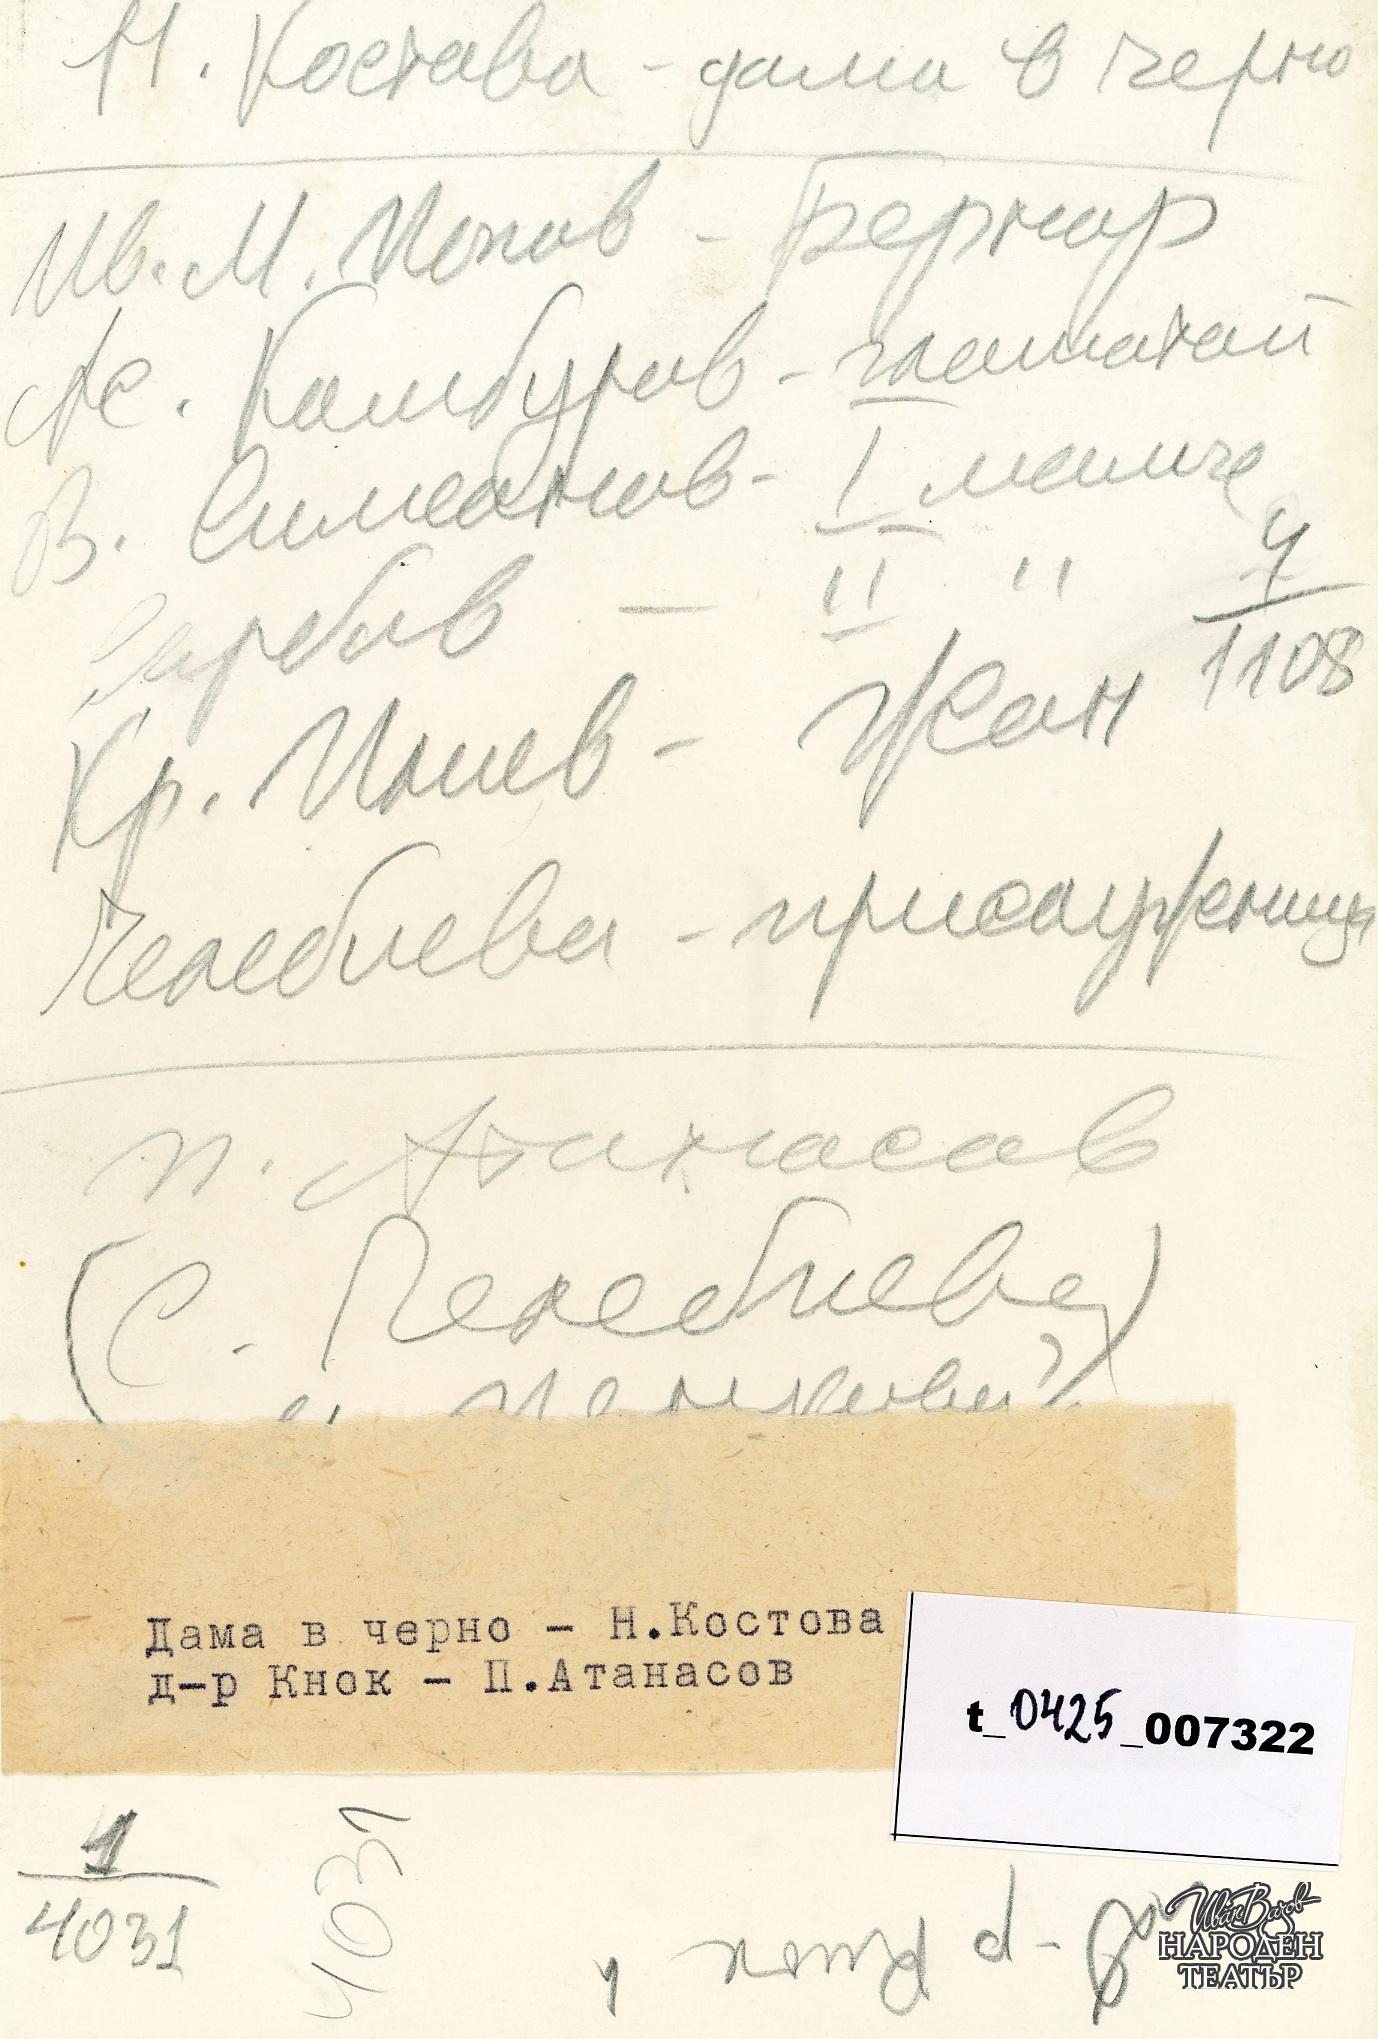 Н. Костова - дама в черно
Ив. М. Попов - Бернар
Ас. Камбуров - глашатай
В. Симеонов - I момче
Сарбов — II "
4
1108
Кр. Илиев - Жан
Челебиева - прислужница
П. Атанасов
(С. Челебиева)
Дама в черно - Н.Костова
д-р Кнок - П.Атанасов
t_0425_007322
1
4031
4031
д-р Кнок
Иван Вазов
НАРОДЕН
ТЕАТЪР